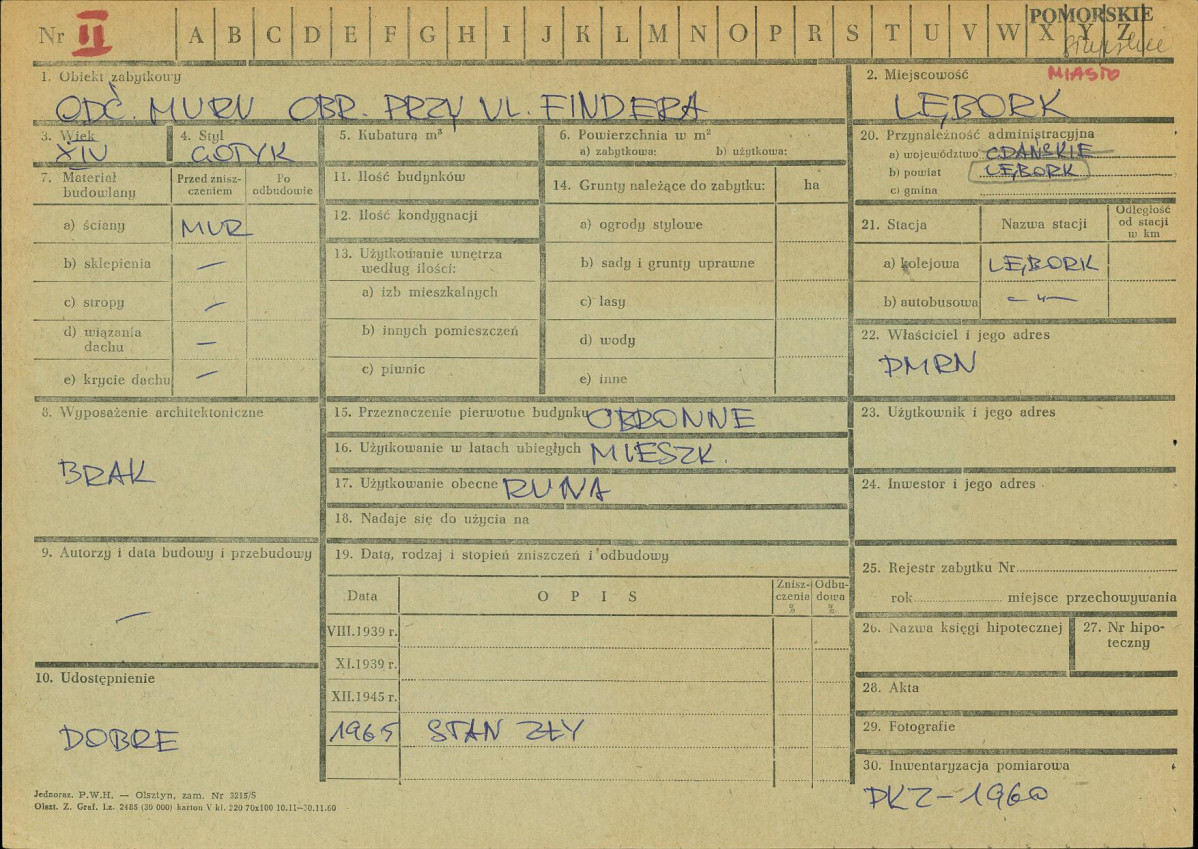 Nr II A B C D E F G H I J K L M N O P R S T U V W X Y Z
POMORSKIE
MIASTO
1. Obiekt zabytkowy
ODC. MURU OBR. PRZY UL. FINDERA
2. Miejscowość
LĘBORK
3. Wiek
XIV
4. Styl
GOTYK
5. Kubatura m³
6. Powierzchnia w m²
a) zabytkowa: b) użytkowa:
7. Materiał budowlany
Przed zniszczeniem
Po odbudowie
a) ściany MUR
b) sklepienia —
c) stropy —
d) wiązania dachu —
e) krycie dachu —
8. Wyposażenie architektoniczne
BRAK
9. Autorzy i data budowy i przebudowy
—
10. Udostępnienie
DOBRE
11. Ilość budynków
12. Ilość kondygnacji
13. Użytkowanie wnętrza według ilości:
a) izb mieszkalnych
b) innych pomieszczeń
c) piwnic
14. Grunty należące do zabytku: ha
a) ogrody stylowe
b) sady i grunty uprawne
c) lasy
d) wody
e) inne
15. Przeznaczenie pierwotne budynku OBRONNE
16. Użytkowanie w latach ubiegłych MIESZK.
17. Użytkowanie obecne RUINA
18. Nadaje się do użycia na
19. Data, rodzaj i stopień zniszczeń i odbudowy
Data O P I S Zniszczenia % Odbudowa %
VIII.1939 r.
XI.1939 r.
XII.1945 r.
1965 STAN ZŁY
20. Przynależność administracyjna
a) województwo GDAŃSKIE
b) powiat LĘBORK
c) gmina
21. Stacja Nazwa stacji Odległość od stacji w km
a) kolejowa LĘBORK
b) autobusowa —〃—
22. Właściciel i jego adres
PMRN
23. Użytkownik i jego adres
24. Inwestor i jego adres
25. Rejestr zabytku Nr
rok miejsce przechowywania
26. Nazwa księgi hipotecznej
27. Nr hipoteczny
28. Akta
29. Fotografie
30. Inwentaryzacja pomiarowa
PKZ – 1960
Jednoraz. P.W.H. — Olsztyn, zam. Nr 3215/S
Olszt. Z. Graf. Lz. 2485 (30 000) karton V kl. 220 70x100 10.11–30.11.60